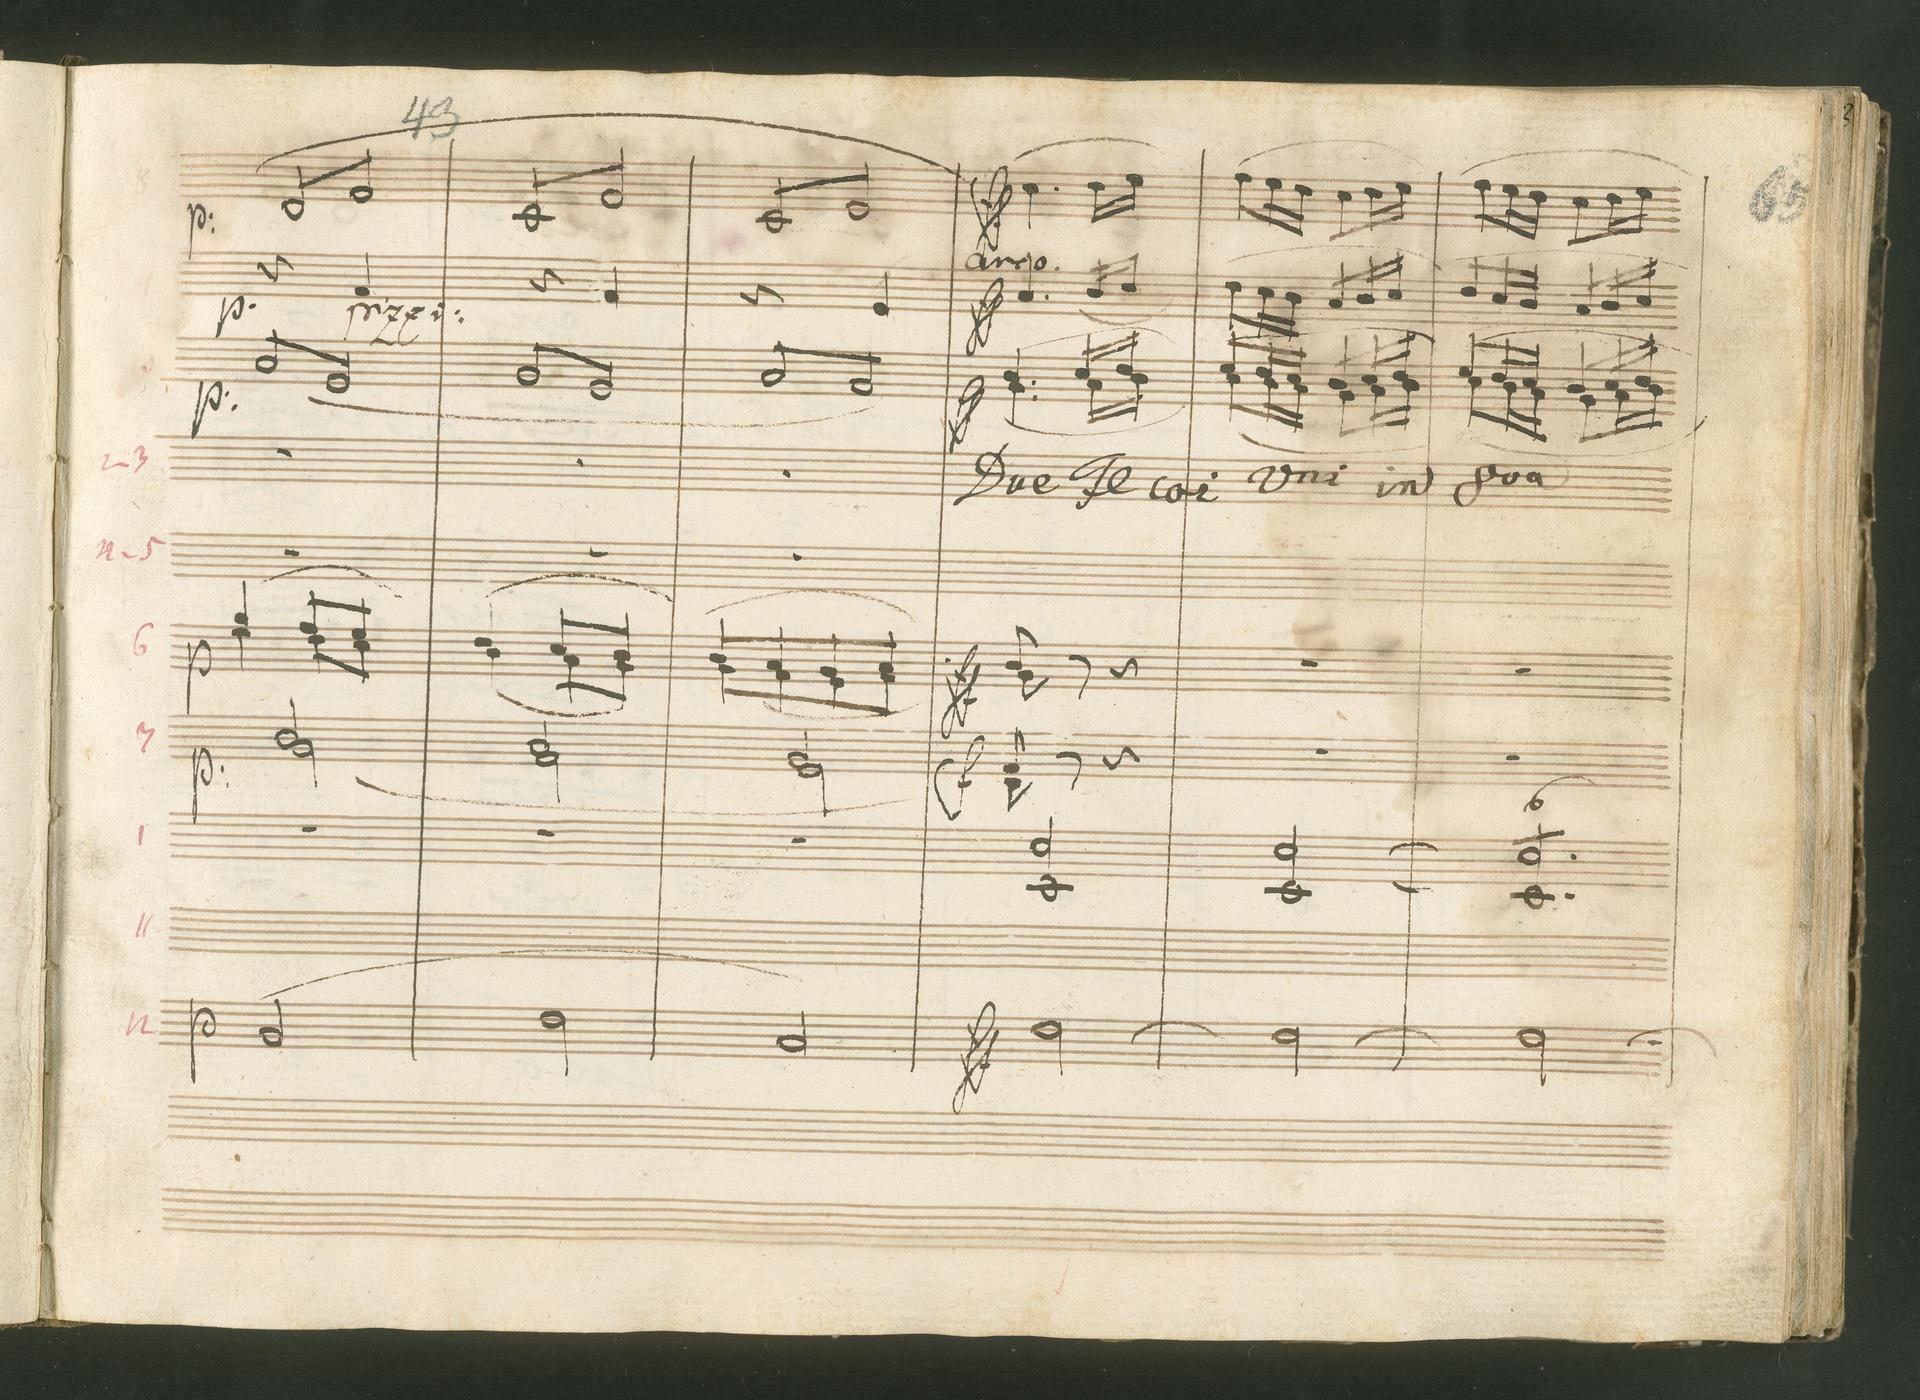 43
65
8
p:
arco.
p: pizzi:
p:
2-3 Due Fl coi Vni in 8va
4-5
6 p
7 p:
1
11
12 p